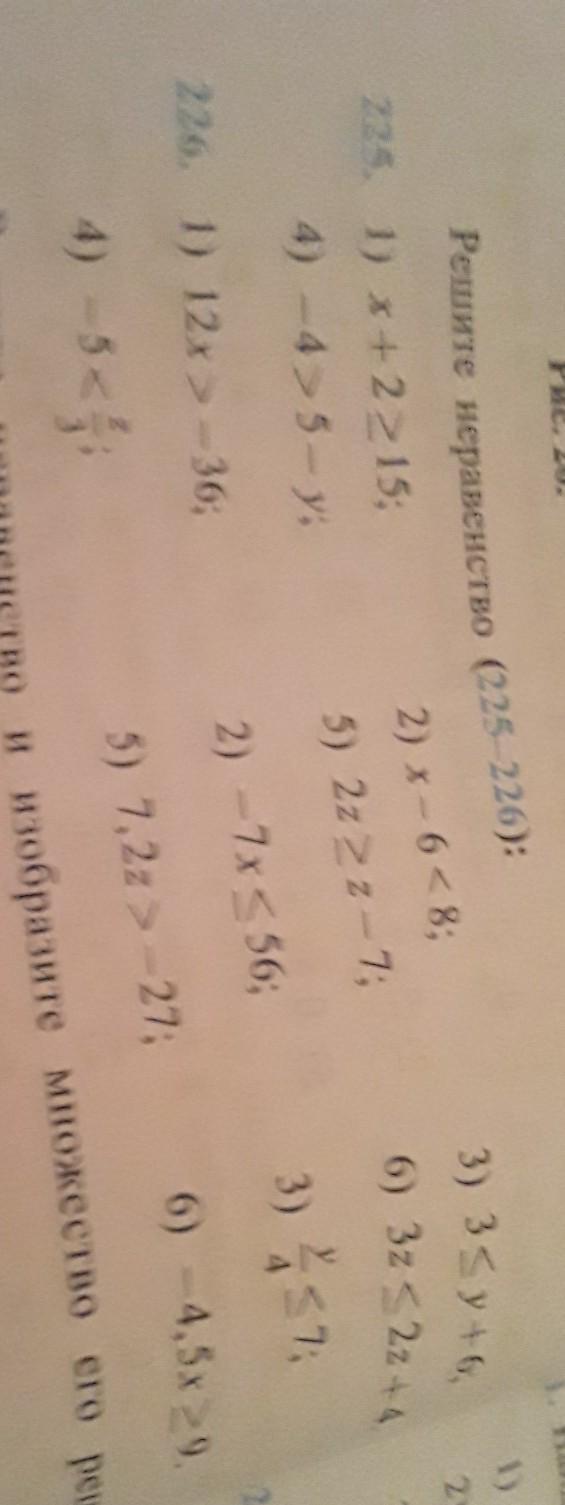 Рис. 20.
Решите неравенство (225–226):
225. 1) x + 2 ≥ 15; 2) x − 6 < 8; 3) 3 ≤ y + 6;
4) −4 > 5 − y; 5) 2z ≥ z − 7; 6) 3z ≤ 2z + 4
226. 1) 12x > −36; 2) −7x ≤ 56; 3) y/4 ≤ 7;
4) −5 < z/3; 5) 7,2z > −27; 6) −4,5x ≥ 9.
и изобразите множество его
1)
2
2